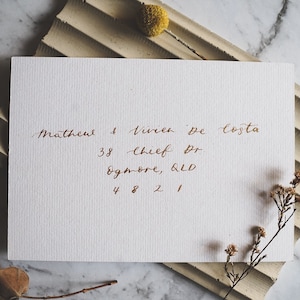 Matheus & Vivien De Costa
38 Cheef Dr
Ogmore, QLD
4 8 2 1